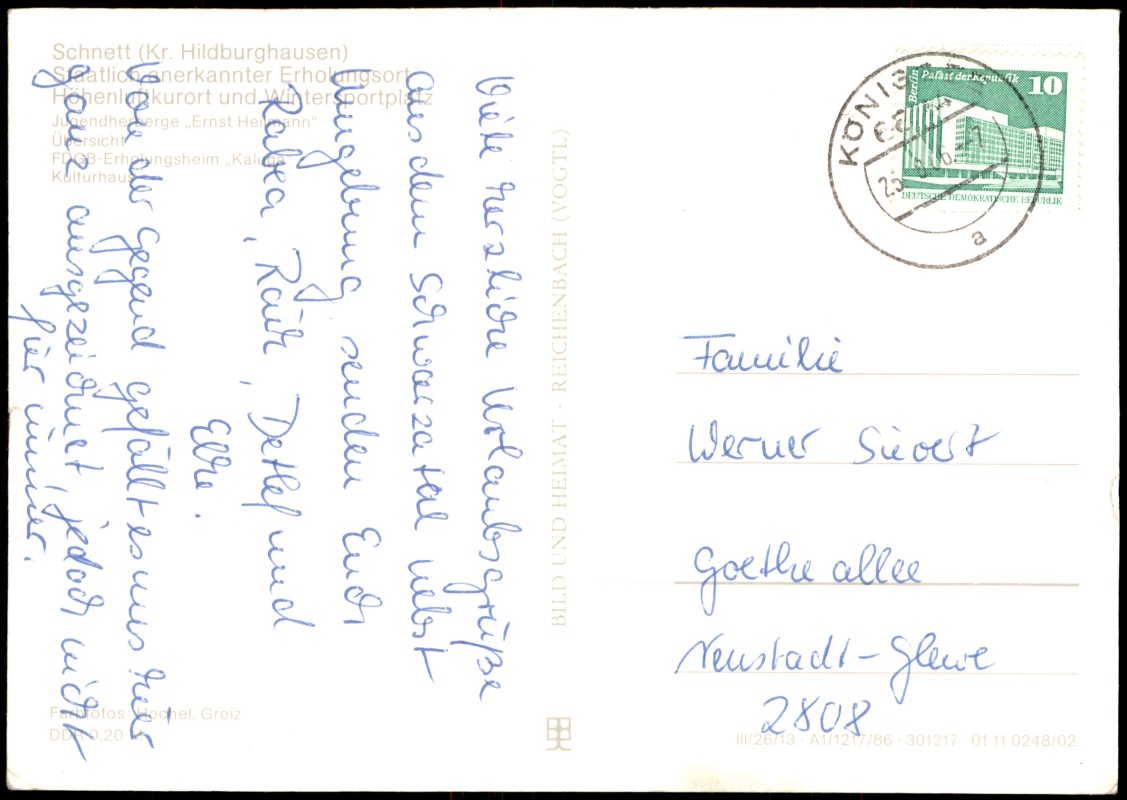 Schnett (Kr. Hildburghausen)
Staatlich anerkannter Erholungsort
Höhenluftkurort und Wintersportplatz
Jugendherberge „Ernst Hermann“
Übersicht
FDGB-Erholungsheim „Kaluga“
Kulturhaus
Viele herzliche Urlaubsgrüße
aus dem Schwarzatal nebst
Umgebung senden Euch
Rabea, Raik, Detlef und
Elke.
Von der Gegend gefällt es uns hier
ganz ausgezeichnet, jedoch nicht
für immer.
Farbfotos: Hochel, Greiz
DDR 0,20 M
BILD UND HEIMAT · REICHENBACH (VOGTL)
Berlin Palast der Republik 10
DEUTSCHE DEMOKRATISCHE REPUBLIK
a
Familie
Werner Sievert
Goetheallee
Neustadt-Glewe
2808
III/26/13 · A1/1217/86 · 301217 01 11 0248/02